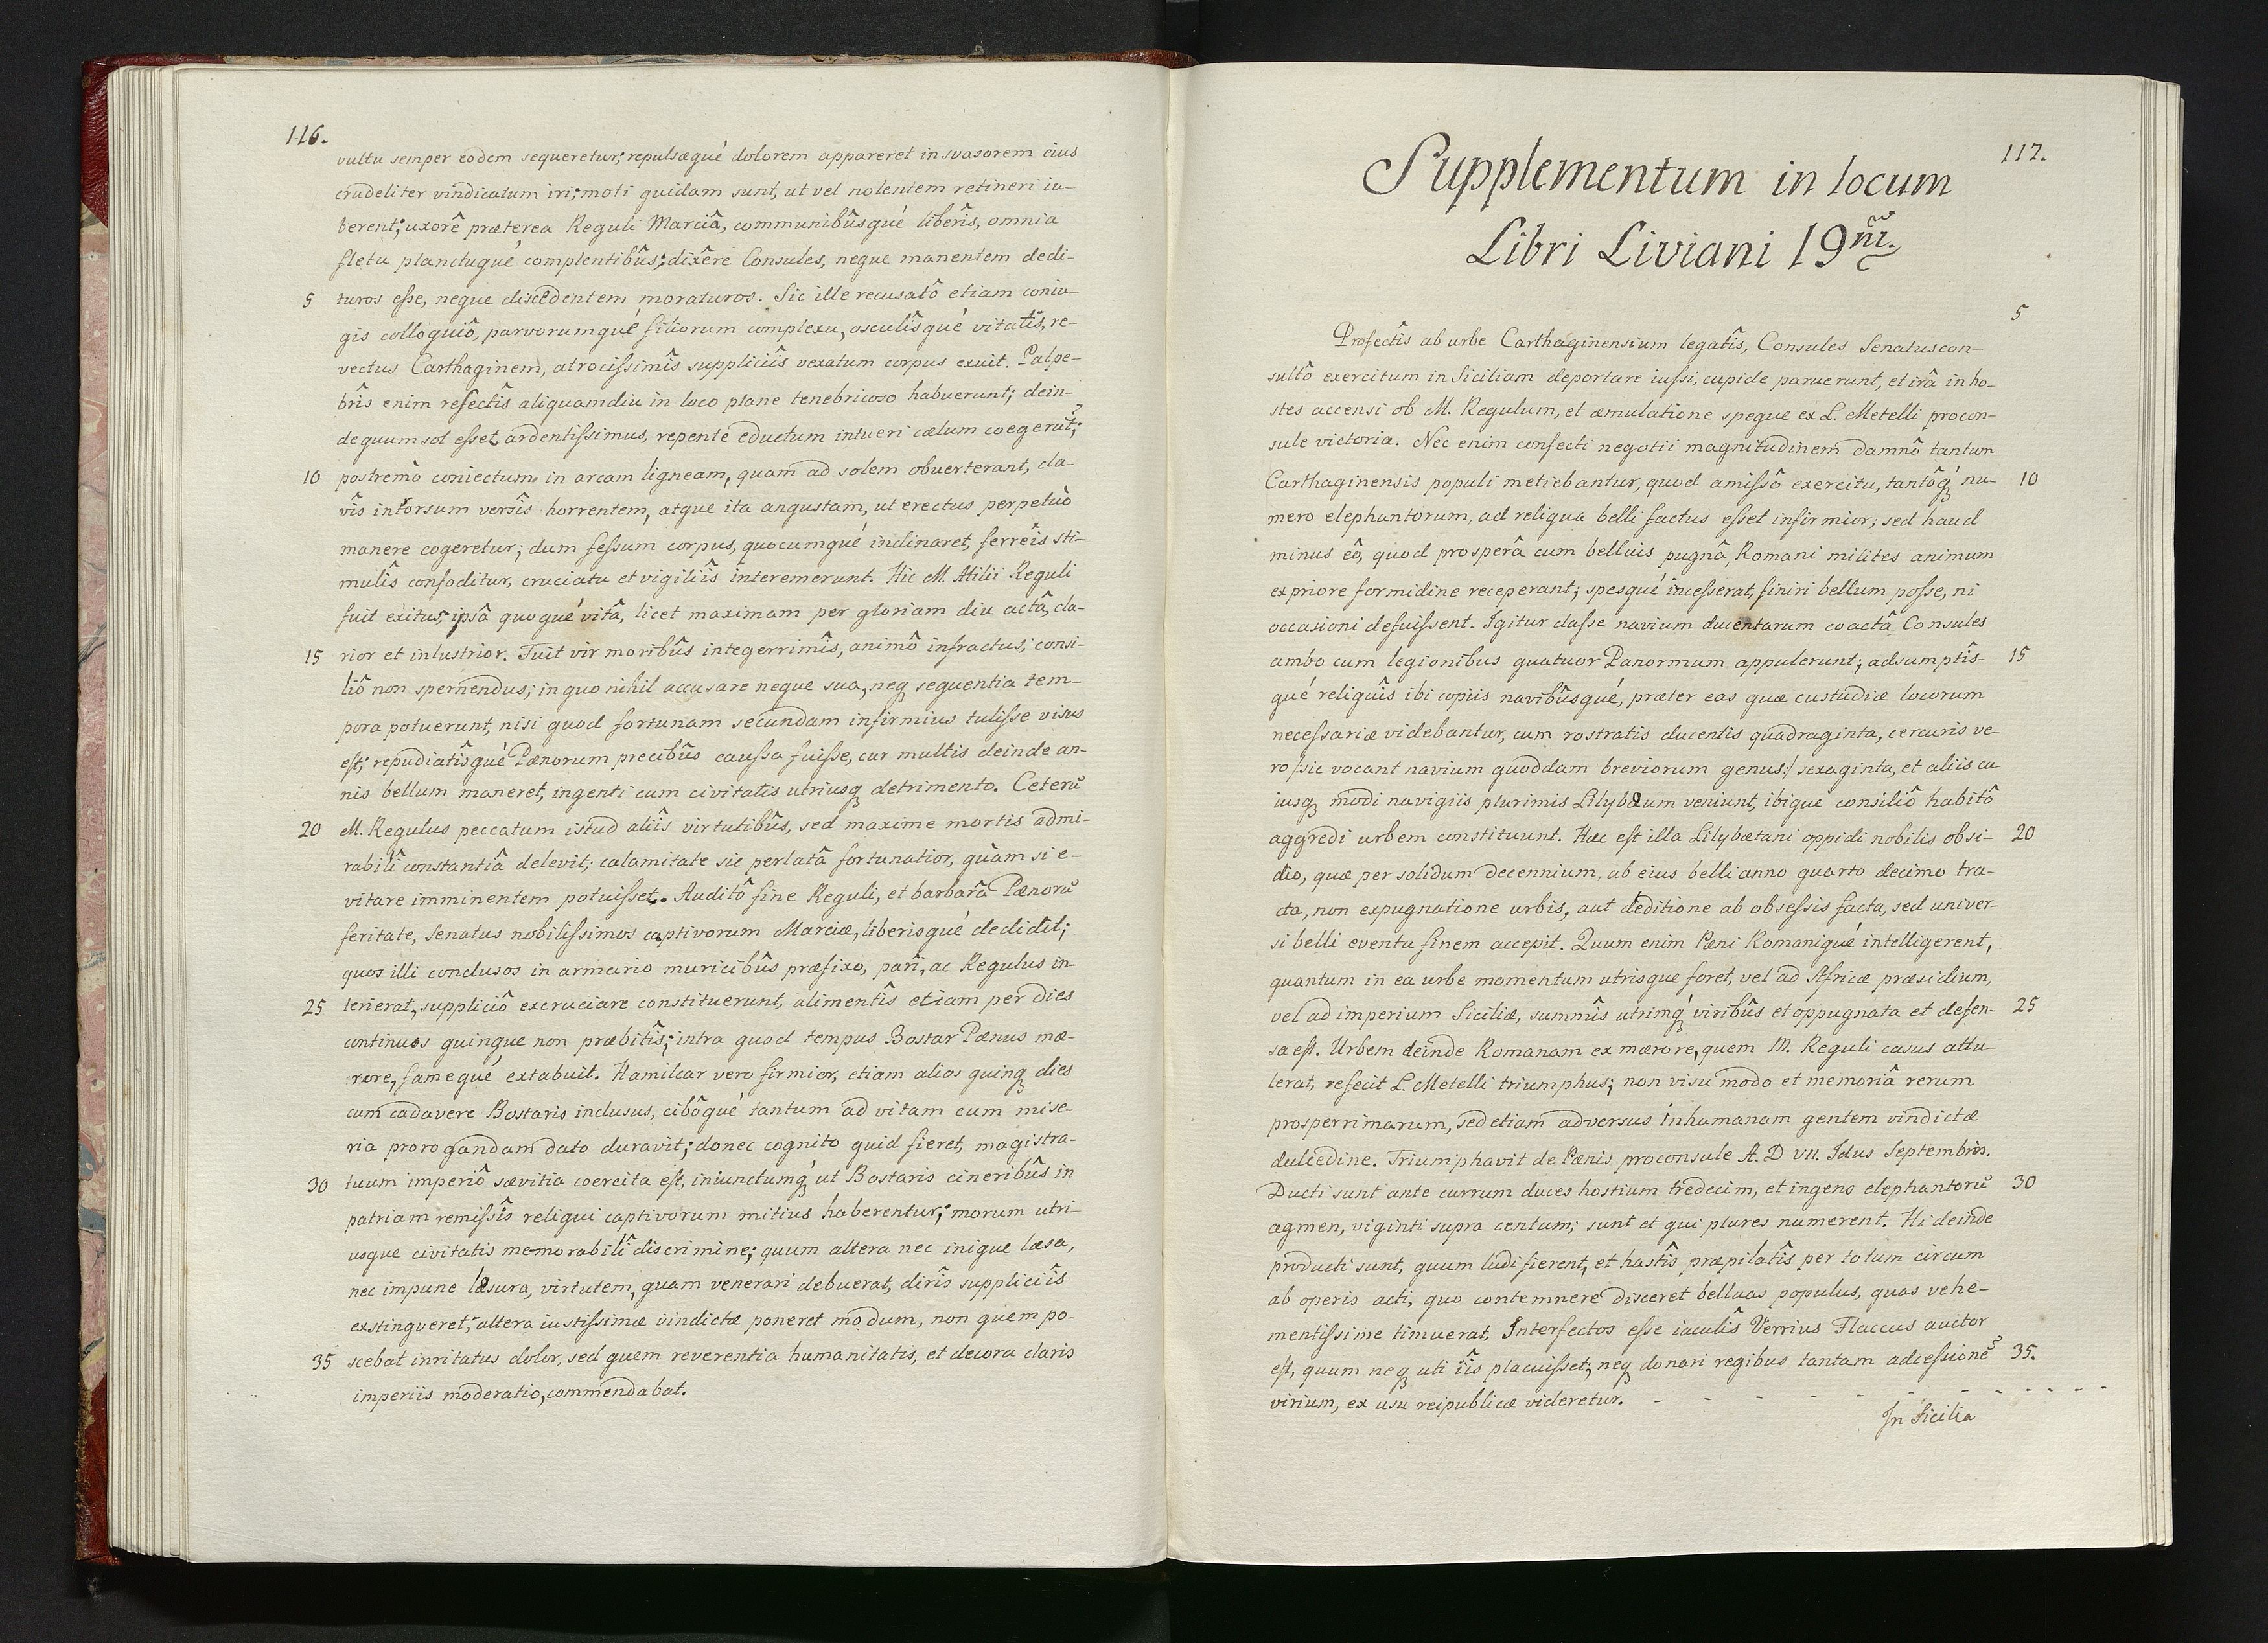 116.
vultu semper eodem sequeretur; repulsæqué dolorem appareret in suasorem eius
crudeliter vindicatum iri; moti quidam sunt, ut vel nolentem retineri iu-
berent; uxorê præterea Reguli Marciâ, communibûsqué liberîs, omnia
fletu planctuqué complentibûs; dixêre Consules, neque manentem dedi-
5 turos esse, neque discedentem moraturos. Sic ille recusatô etiam coniu-
gis colloquiô, parvorumqué filiorum complexu, osculîsqué vitatîs, re-
vectus Carthaginem, atrocißimîs suppliciîs vexatum corpus exuit. Palpe-
brîs enim resectîs aliquamdiu in loco plane tenebricoso habuerunt; dein-
de quum sol eßet ardentißimus, repente eductum intueri cælum coegerūt;
10 postremò coniectum in arcam ligneam, quam ad solem obverterant, cla-
vîs introrsum versîs horrentem, atque ita angustam, ut erectus perpetuò
manere cogeretur; dum feßum corpus, quocumqué inclinaret, ferreîs sti-
mulîs confoditur, cruciatu et vigiliîs interemerunt. Hic M. Atilii Reguli
fuit exitus, ipsâ quoqué vitâ, licet maximam per gloriam diu actâ, cla-
15 rior et inlustrior. Fuit vir moribûs integerrimîs, animô infractus; consi-
liô non spernendus; in quo nihil accusare neque sua, neq sequentia tem-
pora potuerunt, nisi quod fortunam secundam infirmius tuliße visus
est; repudiatîsqué Pænorum precibûs caußa fuiße, cur multis deinde an-
nis bellum maneret, ingenti cum civitatis utriusq detrimento. Ceterū
20 M. Regulus peccatum istud aliîs virtutibûs, sed maxime mortis admi-
rabilî constantiâ delevit; calamitate sic perlatâ fortunatior, quàm si e-
vitare imminentem potuißet. Auditô fine Reguli, et barbarâ Pænorū
feritate, Senatus nobilißimos captivorum Marciæ, liberisqué dedidit;
quos illi conclusos in armario muricibûs præfixo, parî, ac Regulus in-
25 terierat, suppliciô excruciare constituerunt, alimentîs etiam per dies
continuos quinque non præbitîs; intra quod tempus Bostar Pænus mæ-
rore, famequé extabuit. Hamilcar vero firmior, etiam alios quinq dies
cum cadavere Bostaris inclusus, cibôqué tantum ad vitam cum mise-
ria prorogandam dato duravit; donec cognito quid fieret, magistra-
30 tuum imperiô sævitia coercita est, iniunctumq́ ut Bostaris cineribûs in
patriam remißîs reliqui captivorum mitius haberentur; morum utri-
usque civitatis memorabilî discrimine; quum altera nec inique læsa,
nec impune læsura, virtutem, quam venerari debuerat, dirîs suppliciîs
exstingveret; altera iustißimæ vindictæ poneret modum, non quem po-
35 scebat inritatus dolor, sed quem reverentia humanitatis, et decora claris
imperiis moderatio, commendabat.
117.
Supplementum in locum
Libri Liviani 19ni.
5
Profectîs ab urbe Carthaginensium legatîs, Consules Senatuscon-
sultô exercitum in Siciliam deportare iußi, cupide paruerunt, et irâ in ho-
stes accensi ob M. Regulum, et æmulatione speque ex L. Metelli procon-
sule victoria. Nec enim confecti negotii magnitudinem damnô tantum
Carthaginensis populi metiebantur, quod amißô exercitu, tantôq́ nu- 10
mero elephantorum, ad reliqua belli factus eßet infirmior; sed haud
minus eô, quod prosperâ cum belluis pugnâ, Romani milites animum
ex priore formidine receperant; spesqué inceßerat, finiri bellum poße, ni
occasioni defuißent. Igitur claße navium ducentarum coactâ Consules
ambo cum legionibus quatuor Panormum appulerunt; adsumptîs- 15
qué reliquîs ibi copiis navibûsqué, præter eas quæ custudiæ locorum
neceßariæ videbantur, cum rostratis ducentis quadraginta, cercuris ve-
ro /sic vocant navium quoddam breviorum genus:/ sexaginta, et aliis cu
iusq modi navigiis plurimis Lilybæum veniunt, ibique consiliô habitô
aggredi urbem constituunt. Hæc est illa Lilybætani oppidi nobilis obsi- 20
dio, quæ per solidum decennium, ab eius belli anno quarto decimo tra-
cta, non expugnatione urbis, aut deditione ab obseßis facta, sed univer-
si belli eventu finem accepit. Quum enim Pæni Romaniqué intelligerent,
quantum in ea urbe momentum utrisque foret, vel ad Africæ præsidium,
vel ad imperium Siciliæ, summîs utrimq́ viribûs et oppugnata et defen- 25
sa est. Urbem deinde Romanam ex mærore, quem M. Reguli casus attu
lerat, refecit L. Metelli triumphus; non visu modo et memoriâ rerum
prosperrimarum, sed etiam adversus inhumanam gentem vindictæ
dulcedine. Triumphavit de Pænis proconsule A. D VII. Idus Septembris.
Ducti sunt ante currum duces hostium tredecim, et ingens elephantorū 30
agmen, viginti supra centum; sunt et qui plures numerent. Hi deinde
producti sunt, quum ludi fierent, et hastîs præpilatîs per totum circum
ab operis acti, quo contemnere disceret belluas populus, quas vehe-
mentißime timuerat. Interfectos eße iaculîs Verrius Flaccus auctor
est, quum neq uti iîs placuißet; neq donari regibus tantam acceßionē 35.
virium, ex usu reipublicæ videretur. - - - - - - - - - -
In Sicilia